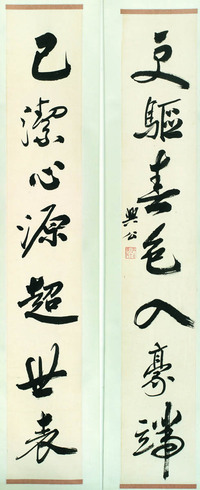 已潔心源超世表
更驅春色入豪端
興公